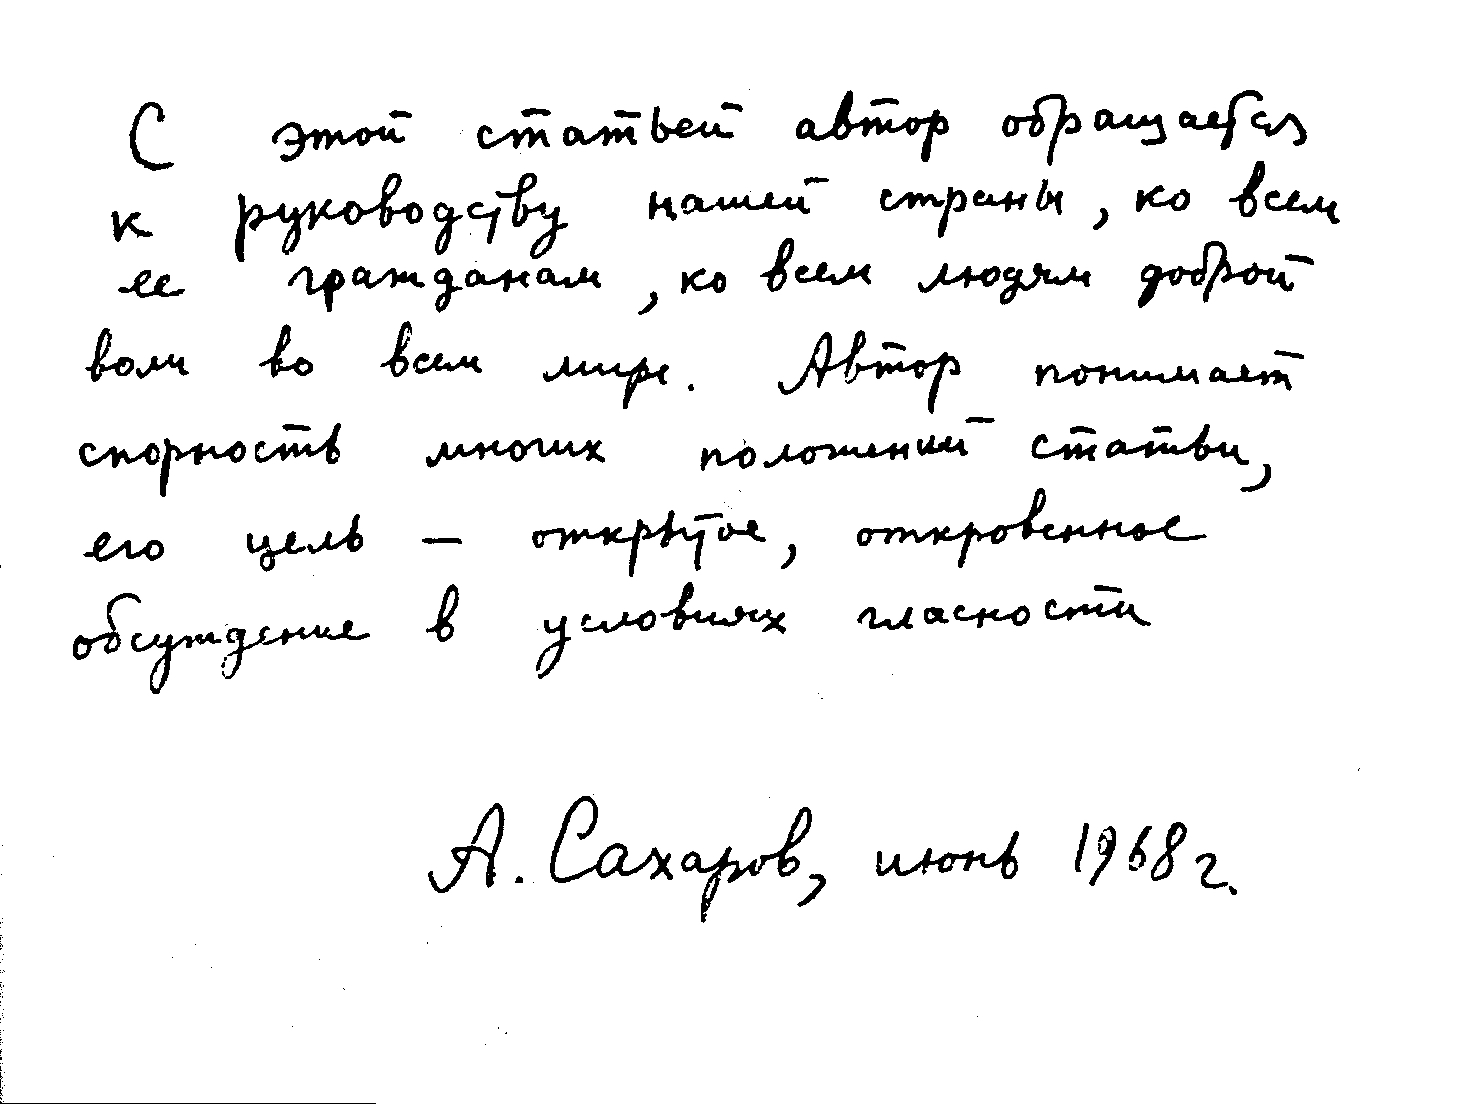 С этой статьей автор обращается
к руководству нашей страны, ко всем
ее гражданам, ко всем людям доброй
воли во всем мире. Автор понимает
спорность многих положений статьи,
его цель — открытое, откровенное
обсуждение в условиях гласности
А. Сахаров, июнь 1968 г.